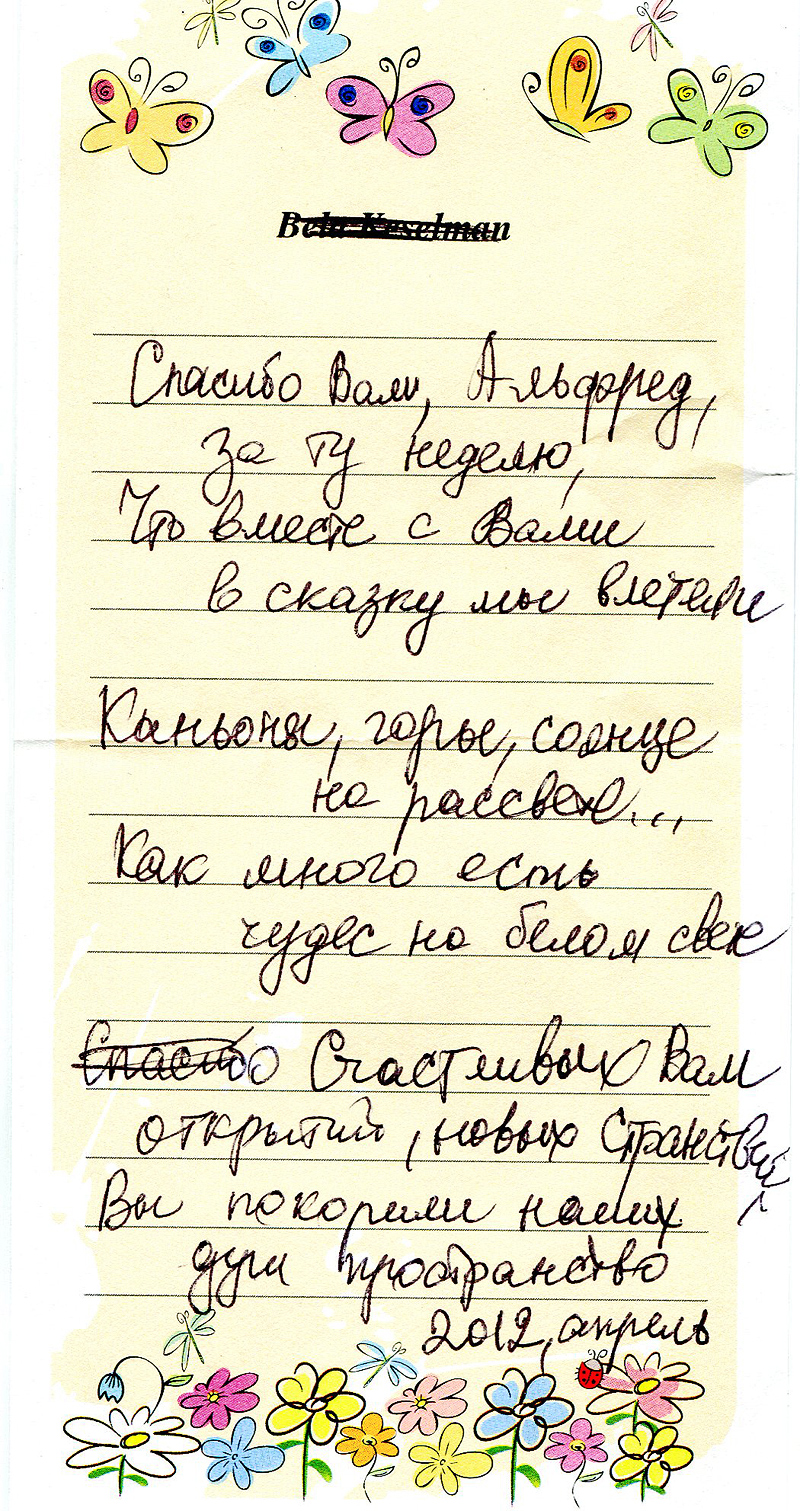 Bela Keselman
Спасибо Вам, Альфред,
За ту неделю,
Что вместе с Вами
в сказку мы влетели
Каньоны, горы, солнце
на рассвете...
Как много есть
чудес на белом свете
Спасибо Счастливых Вам
открытий, новых странствий
Вы покорили наших
душ пространство
2012, апрель